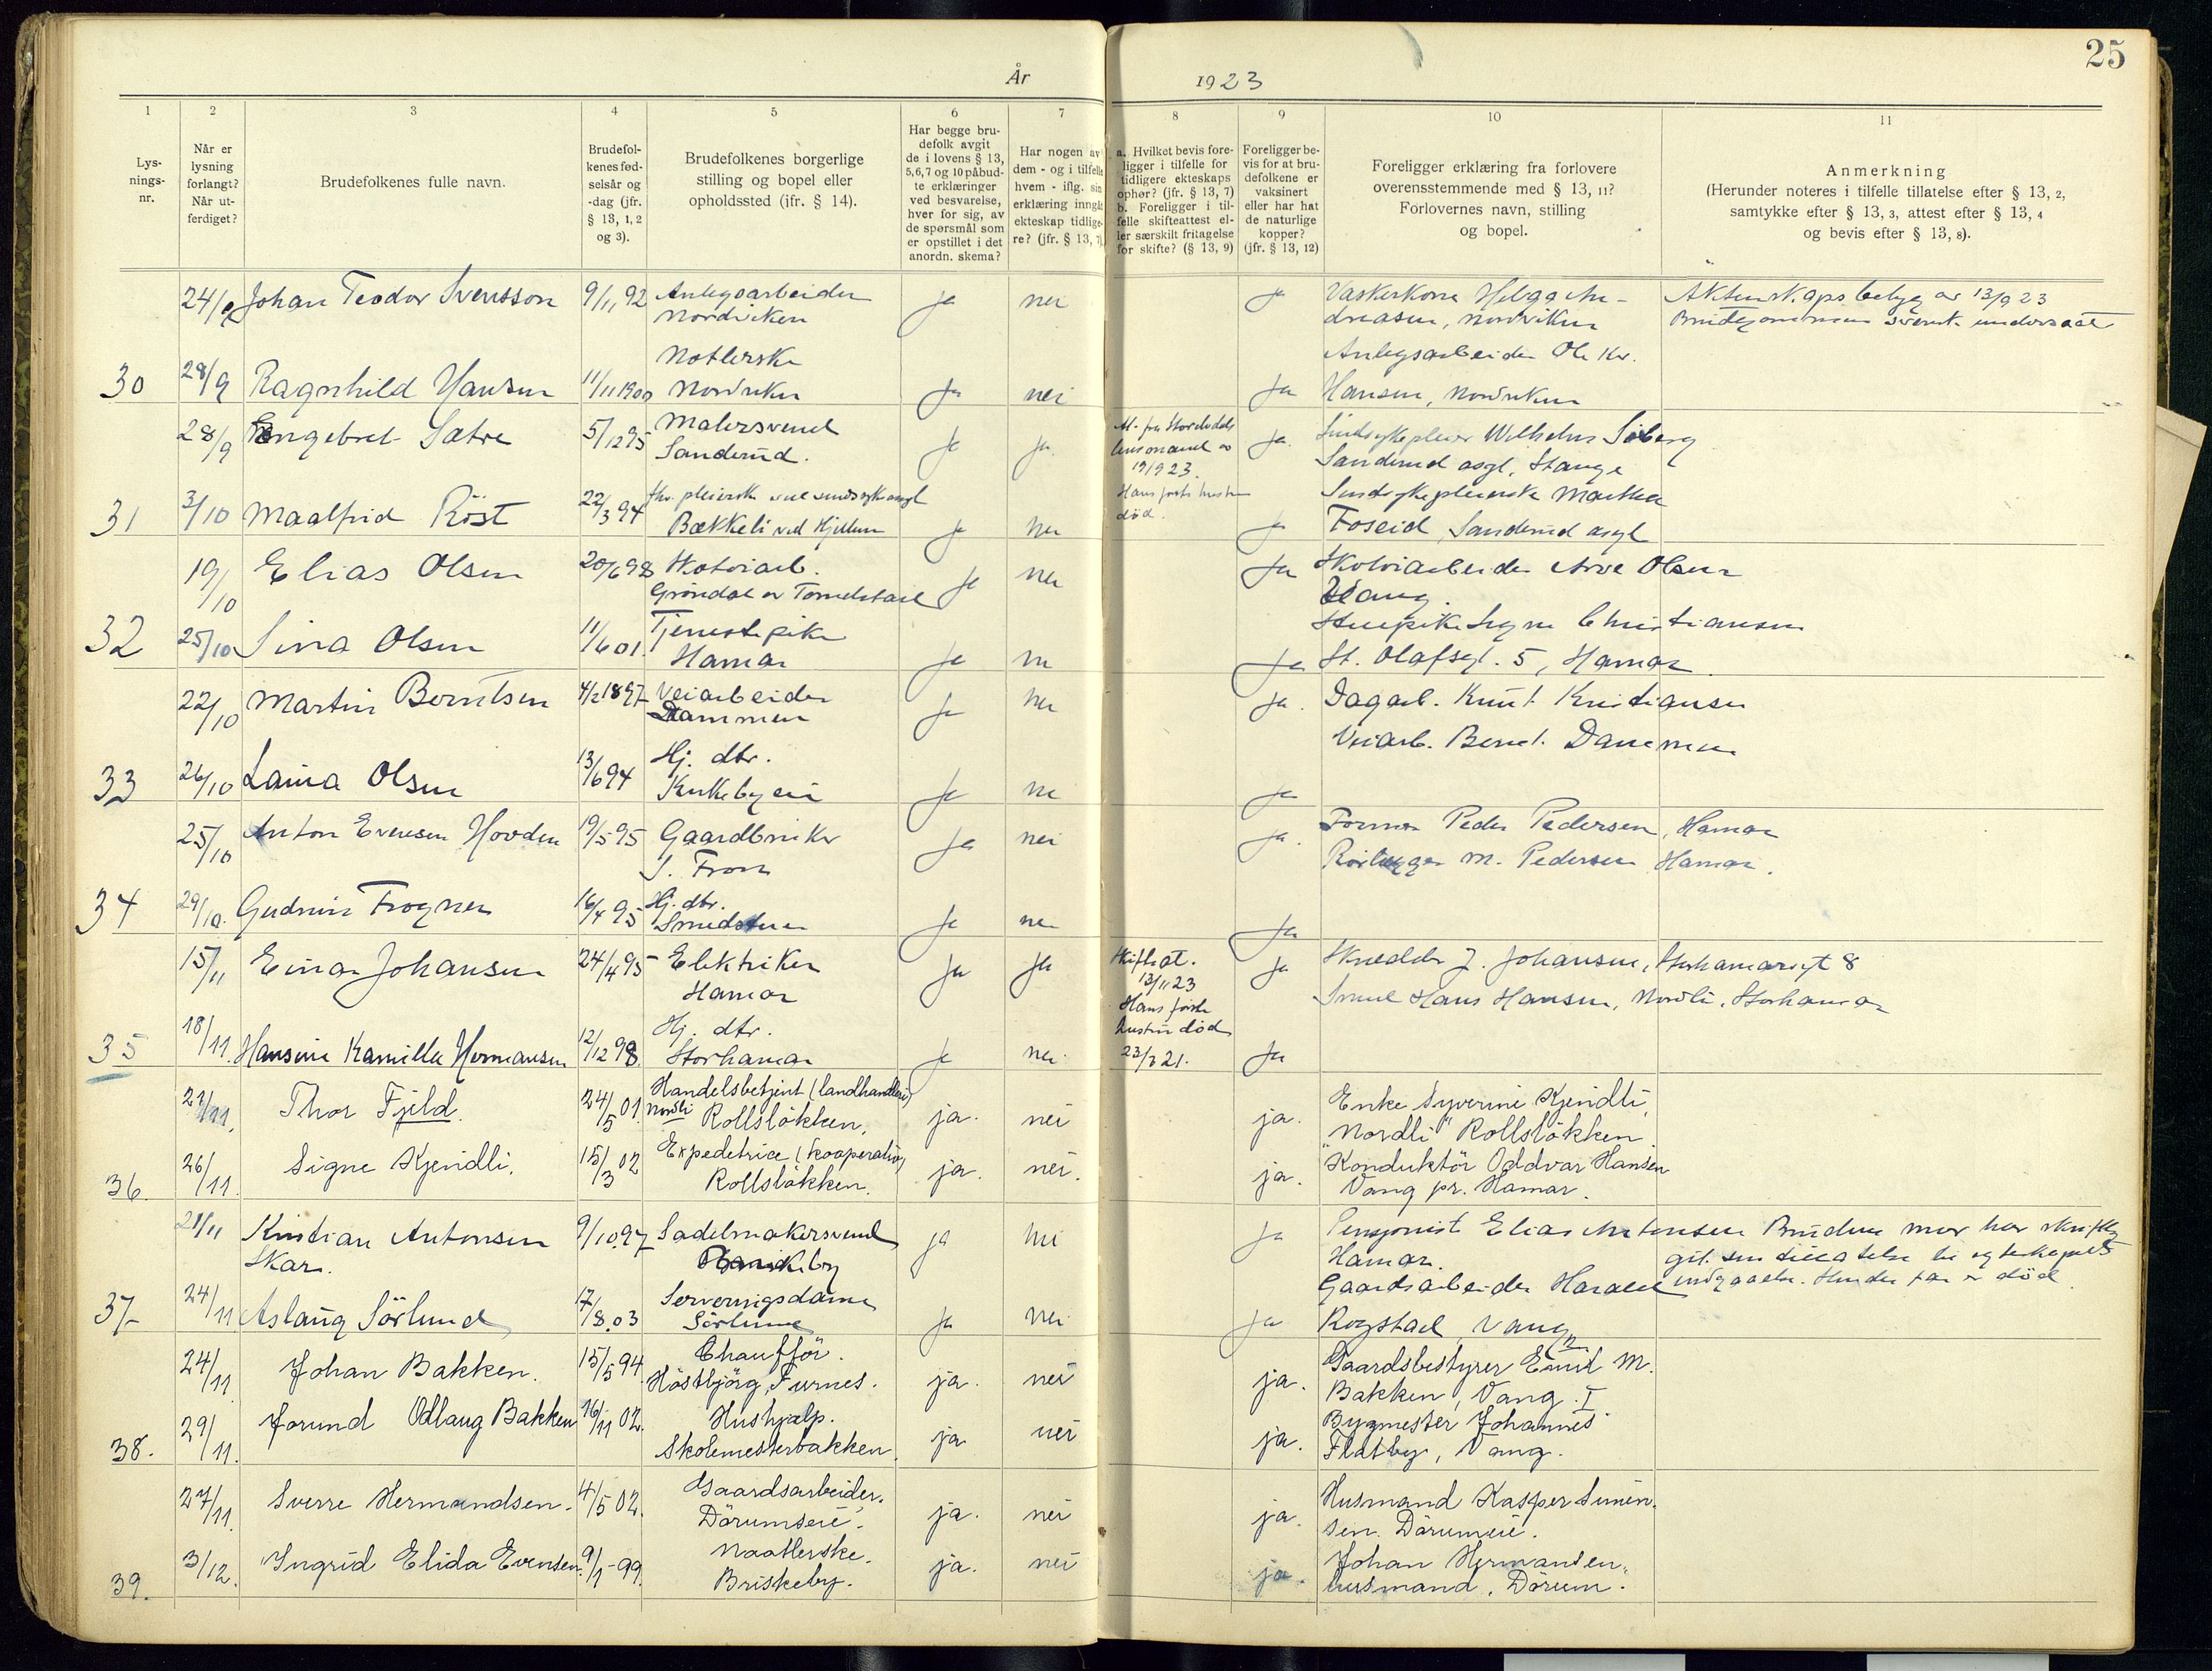 25
År 1923
1 2 3 4 5 6 7 8 9 10 11
Lys-
nings-
nr.
Når er
lysning
forlangt?
Når ut-
ferdiget?
Brudefolkenes fulle navn.
Brudefol-
kenes fød-
selsår og
-dag (jfr.
§ 13, 1, 2
og 3).
Brudefolkenes borgerlige
stilling og bopel eller
opholdssted (jfr. § 14).
Har begge bru-
defolk avgit
de i lovens § 13,
5, 6, 7 og 10 påbud-
te erklæringer
ved besvarelse,
hver for sig, av
de spørsmål som
er opstillet i det
anordn. skema?
Har nogen av
dem - og i tilfelle
hvem - iflg. sin
erklæring inngåt
ekteskap tidlige-
re? (jfr. § 13, 7)
a. Hvilket bevis fore-
ligger i tilfelle for
tidligere ekteskaps
ophør? (jfr. § 13, 7)
b. Foreligger i til-
felle skifteattest el-
ler særskilt fritagelse
for skifte? (§ 13, 9)
Foreligger be-
vis for at bru-
defolkene er
vaksinert
eller har hat
de naturlige
kopper?
(jfr. § 13, 12)
Foreligger erklæring fra forlovere
overensstemmende med § 13, 11?
Forlovernes navn, stilling
og bopel.
Anmerkning
(Herunder noteres i tilfelle tillatelse efter § 13, 2,
samtykke efter § 13, 3, attest efter § 13, 4
og bevis efter § 13, 8).
24/9 Johan Teodor Svensson 9/11 92 Anlegsarbeider ja nei ja Vaskerkone Helga An-
Nordviken dreasen, Nordviken
Anlegsarbeider Ole Kr.
30 28/9 Ragnhild Hansen 11/11 1900 Notlerske Nordviken ja nei ja Hansen, Nordviken
28/9 Engebret Sætre 5/12 95 Malersvend ja ja ja. Sindsykepleier Wilhelm Siberg
Sanderud. Sanderud asyl, Stange
31 3/10 Maalfrid Röst 22/3 94 Bækkeli ved Hjellum ja nei ja Sindsykepleierske Martha
Foseid, Sanderud asyl
19/10 Elias Olsen 20/6 98 Skotøiarb. ja nei ja Skotøiarbeider Arve Olsen
Vang.
32 25/10 Sina Olsen 11/6 01 Tjenestepike Hamar ja nei ja Stuepike Signe Christiansen
St. Olafsgt. 5, Hamar
22/10 Martin Berntsen 4/2 1897 Veiarbeider Dammen ja nei ja. Dagarb. Knut Kristiansen
Veiarb. Bernt. Dammen
33 26/10 Laura Olsen 13/6 94 Hj. dtr. ja nei ja
25/10 Anton Evensen Hovden 19/5 95 Gaardbruker S. Fron ja nei ja. Former Peder Pedersen, Hamar
Rörlegger M. Pedersen Hamar.
34 29/10. Gudrun Frogner 16/4 95 Hj. dtr. Smedstuen ja nei ja
15/11 Einar Johansen 24/4 95 Elektriker Hamar ja ja Skifteat. 13/11 23 ja Skredder J. Johansen, Storhamargt 8
Hans förste hustru död 23/3 21. Smed Hans Hansen, Nordli, Storhamar
35 18/11. Hansine Kamilla Hermansen 12/12 98. Hj. dtr. Storhamar ja nei. ja
21/11. Thor Fjeld. 24/5 01. Handelsbetjent (landhandleri) ja. nei ja. Enke Syverine Kjendli,
Nordli Rollsløkken, "Nordli" Rollsløkken.
36. 26/11. Signe Kjendli. 15/3 02 Expeditrice (kooperativ) ja. nei. ja. Konduktör Oddvar Hansen
Rollsløkken. Vang pr. Hamar.
21/11 Kristian Antonsen 9/10.97 Sadelmakersvend ja nei ja Pensjonist Elias Antonsen Brudens mor har skriftlig
Skar. Briskeby Hamar. git sin tillatelse til egteskapets
Gaardsarbeider Harald indgaaelse. Hendes far er död.
37 24/11 Aslaug Sörlund 17/8.03 Serveringsdame Sörlund ja nei ja Rogstad, Vang
24/11 Johan Bakken. 15/5 94. Chauffør. ja. nei ja. Gaardsbestyrer Emil M.
Høstbjörg, Furnes. Bakken, Vang. I
38. 29/11. Jorund Odlaug Bakken 16/11 02. Hushjælp. ja nei ja. Bygmester Johannes
Skolemesterbakken. Flatby, Vang.
27/11. Sverre Hermandsen. 4/5 02. Gaardsarbeider. ja. nei ja. Husmand Kasper Simen-
Dørumseie. sen. Dørumeie.
39. 3/12. Ingrid Elida Evensen. 9/1-99. Naatlerske. ja. nei ja. Johan Hermansen,
Briskeby. husmand, Dørum.